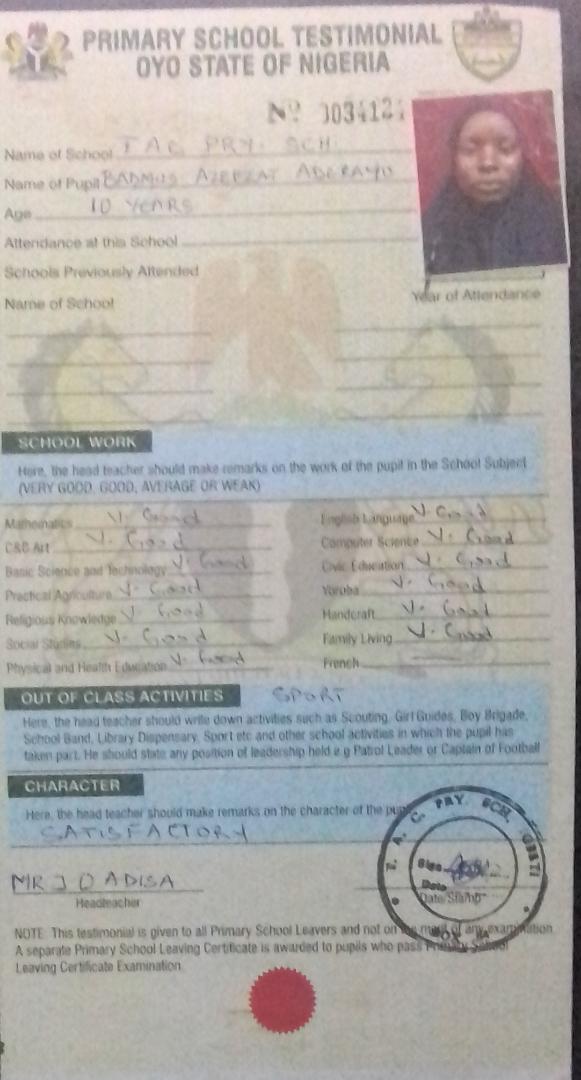 PRIMARY SCHOOL TESTIMONIAL
OYO STATE OF NIGERIA
Nº 003412
Name of School TAC PRY. SCH.
Name of Pupil BADMUS AZEEZAT ADERAYO
Age 10 YEARS
Attendance at this School
Schools Previously Attended
Name of School Year of Attendance
SCHOOL WORK
Here, the head teacher should make remarks on the work of the pupil in the School Subject
(VERY GOOD, GOOD, AVERAGE OR WEAK)
Mathematics V. Good English Language V. Good
C&C Art V. Good Computer Science V. Good
Basic Science and Technology V. Good Civic Education V. Good
Practical Agriculture V. Good Yoruba V. Good
Religious Knowledge V. Good Handcraft V. Good
Social Studies V. Good Family Living V. Good
Physical and Health Education V. Good French
OUT OF CLASS ACTIVITIES SPORT
Here, the head teacher should write down activities such as Scouting, Girl Guides, Boy Brigade,
School Band, Library Dispensary, Sport etc and other school activities in which the pupil has
taken part. He should state any position of leadership held e.g Patrol Leader or Captain of Football
CHARACTER
Here, the head teacher should make remarks on the character of the pupil
SATISFACTORY
T. A. C. PRY. SCH.
Sign
Date
MR J O ADISA
Headteacher Date/Stamp
NOTE: This testimonial is given to all Primary School Leavers and not on the merit of any examination.
A separate Primary School Leaving Certificate is awarded to pupils who pass Primary School
Leaving Certificate Examination.